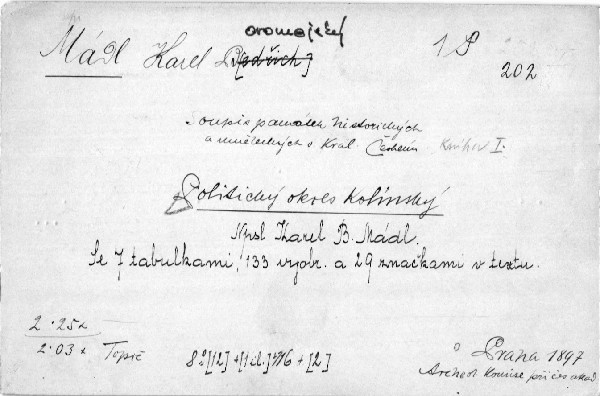 oromejený
Mádl Karel B[edřich]
1 P
202
Soupis památek historických
a uměleckých v Král. Českém Knihov I.
Politický okres kolínský
Npsl Karel B. Mádl.
Se 7 tabulkami, 133 vyobr. a 29 značkami v textu.
2·25 x
2·03 x Topič
8° [12] + [1 il.] + 116 + [2]
Praha 1897
Archeol. Komise při čes. akad